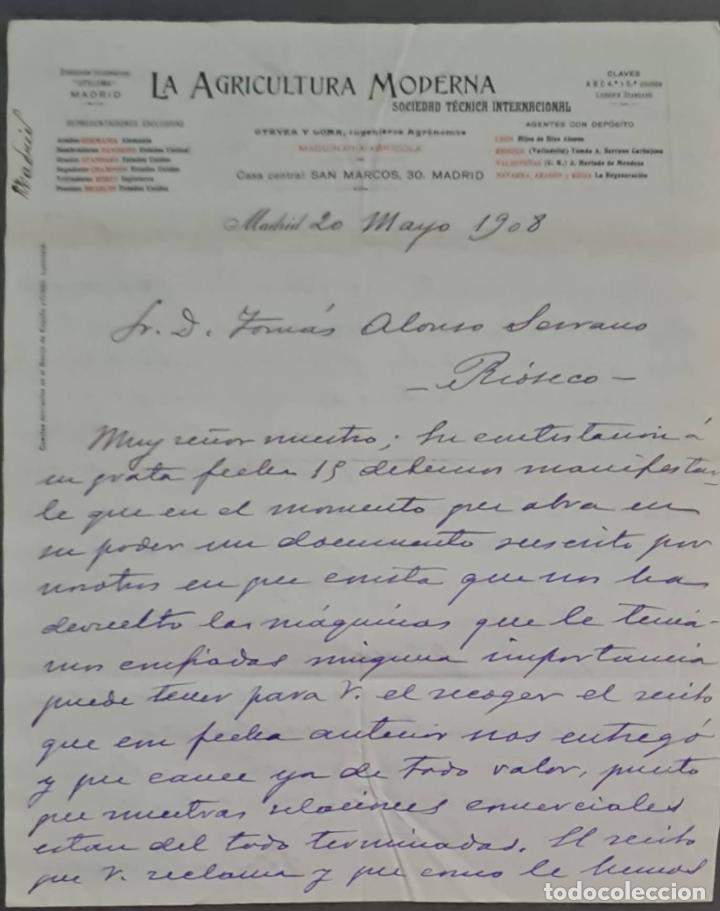 LA AGRICULTURA MODERNA
SOCIEDAD TÉCNICA INTERNACIONAL
MADRID
REPRESENTACIONES EXCLUSIVAS
Arados GERMANIA Alemania
Estados Unidos
Gradas STANDARD Estados Unidos
Segadoras CHAMPION Estados Unidos
Trilladoras Inglaterra
Prensas Estados Unidos
Ingenieros Agrónomos
MAQUINARIA AGRÍCOLA
Casa central: SAN MARCOS, 30. MADRID
CLAVES
A B C 4.ª y 5.ª
AGENTES CON DEPÓSITO
LEÓN Hijos de Díez Alonso
RIOSECO (Valladolid) Tomás A. Serrano
VALDEPEÑAS (C. R.) J. Hurtado de Mendoza
NAVARRA, ARAGÓN y RIOJA La Regeneración
Madrid
Madrid 20 Mayo 1908
Sr. D. Tomás Alonso Serrano
- Rioseco -
Muy señor nuestro; En contestación á
su grata fecha 15 debemos manifestar
le que en el momento que obra en
su poder un documento suscrito por
nosotros en que consta que nos ha
devuelto las máquinas que le tenia-
mos confiadas ninguna importancia
puede tener para V. el recoger el recibo
que en fecha anterior nos entregó
y que carece ya de todo valor, puesto
que nuestras relaciones comerciales
estan del todo terminadas. El recibo
que V. reclama y que como le hemos
todocoleccion
todocoleccion.net